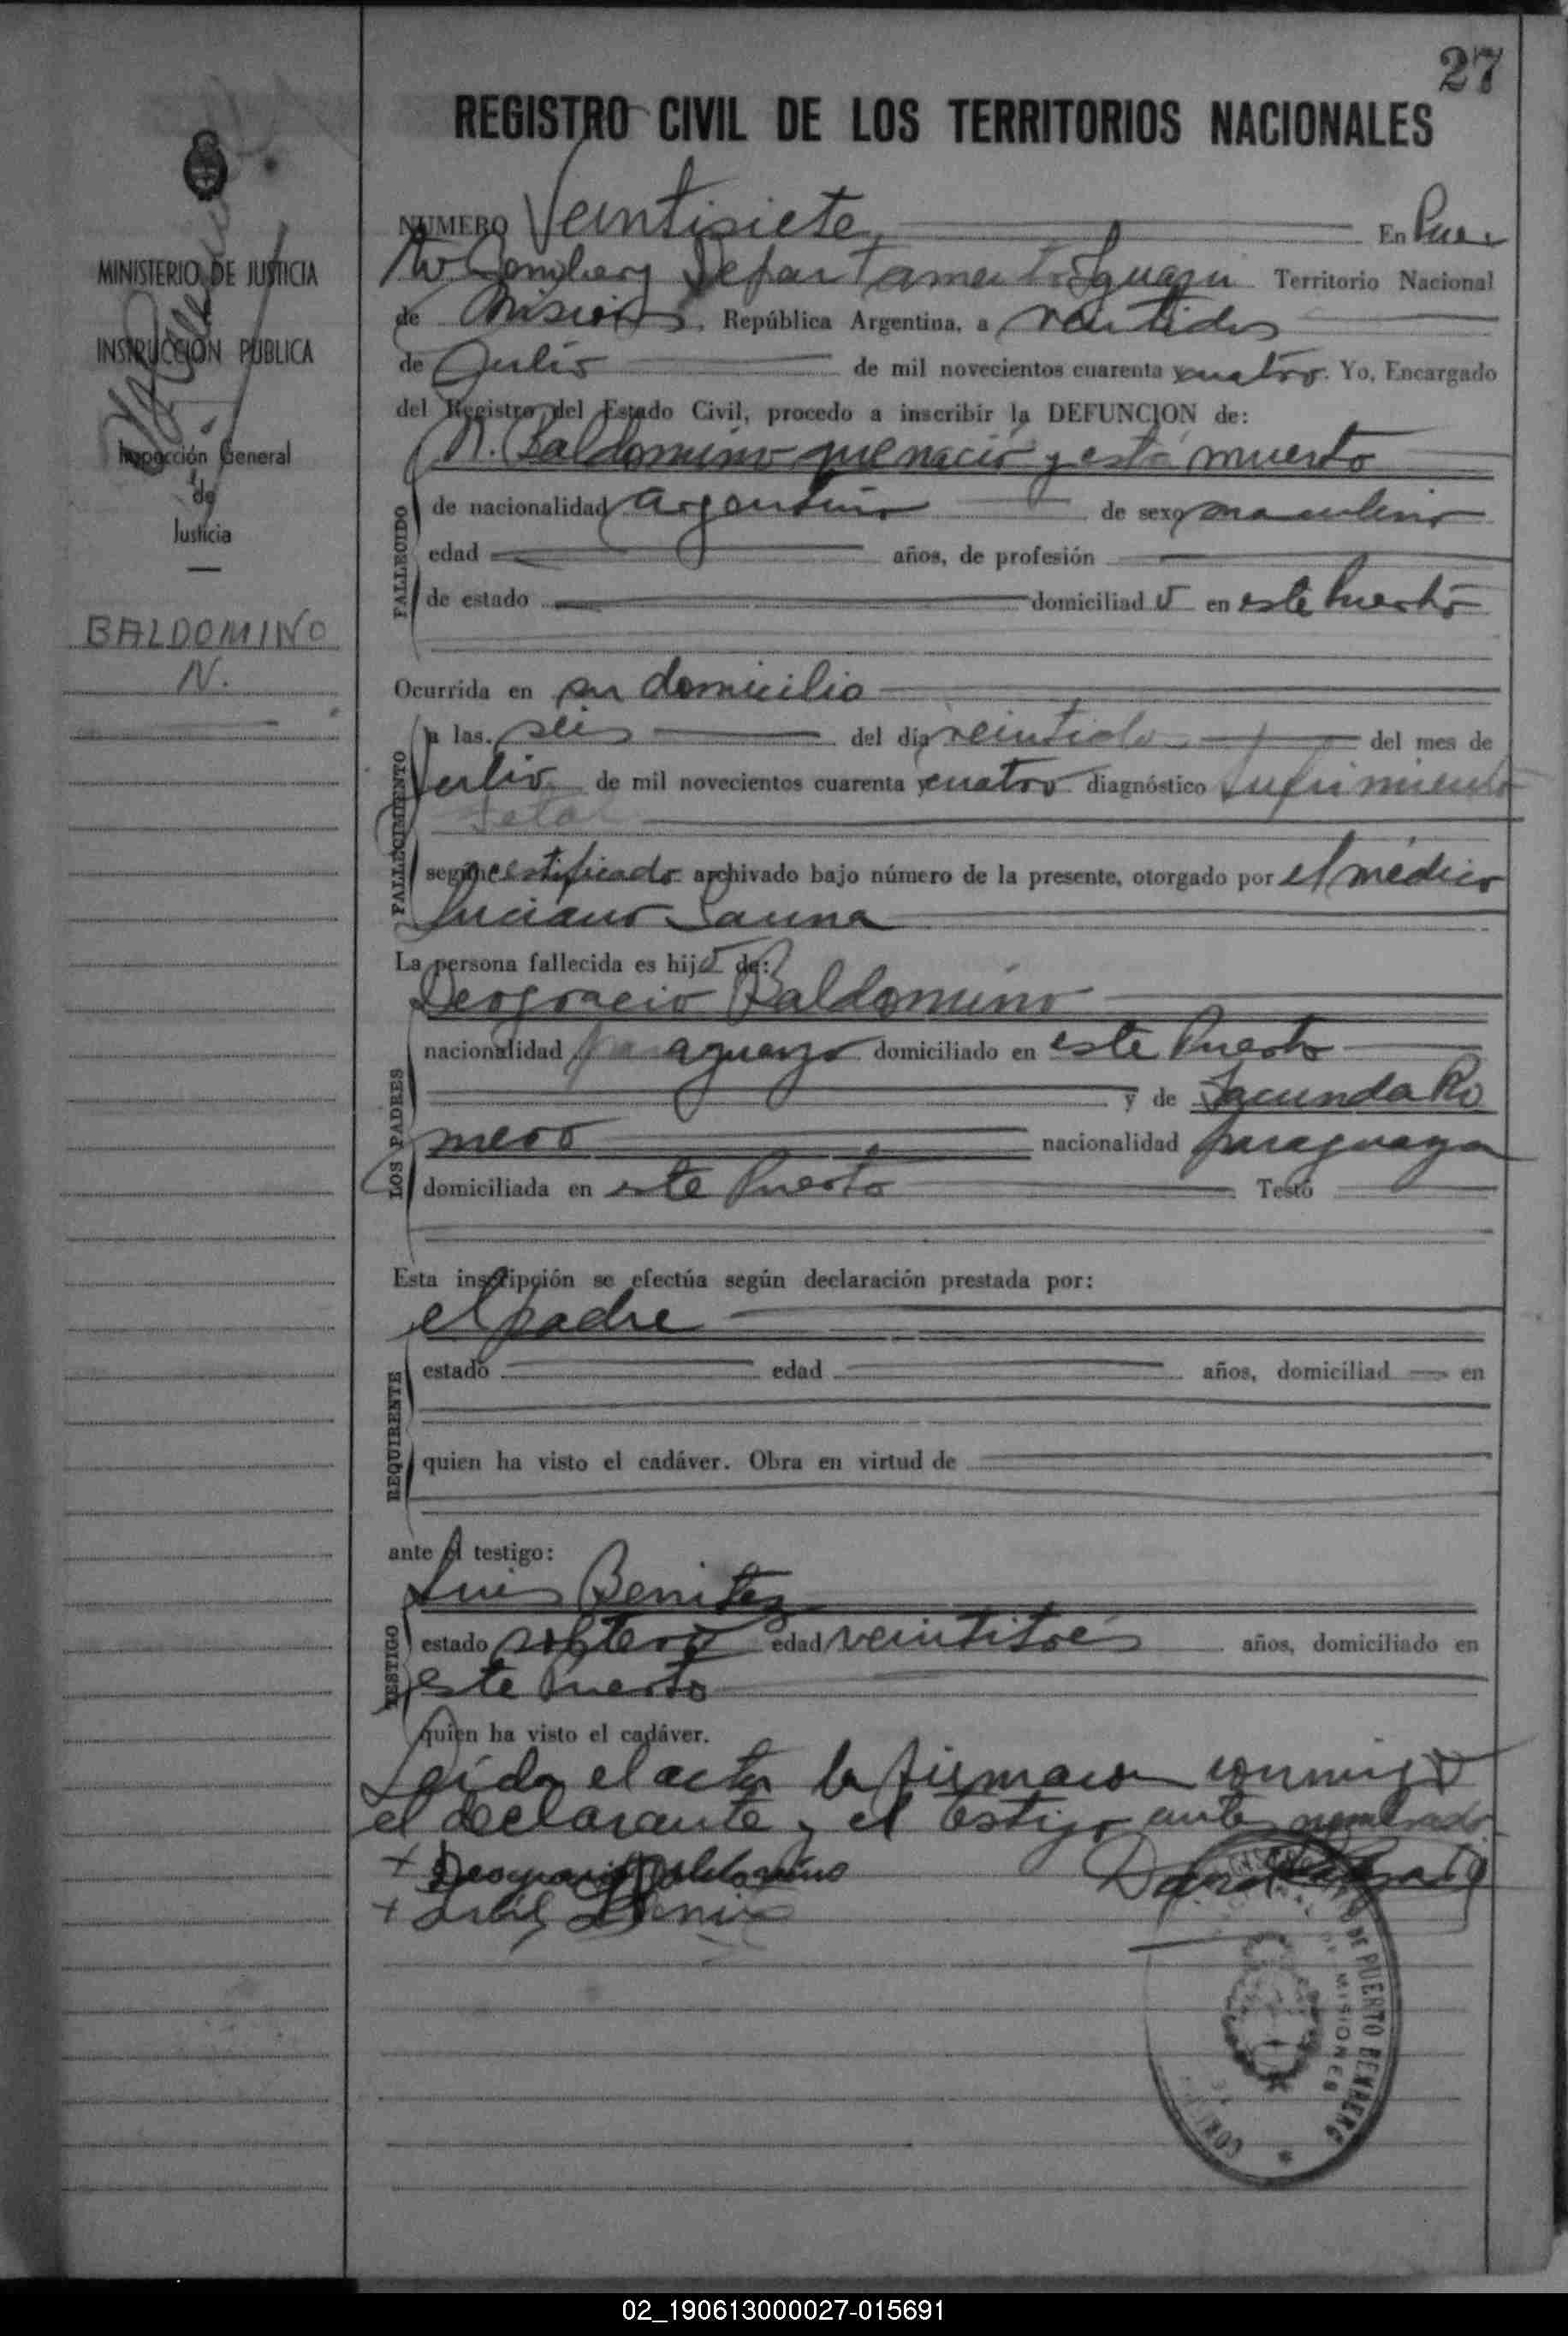 27
REGISTRO CIVIL DE LOS TERRITORIOS NACIONALES
MINISTERIO DE JUSTICIA
INSTRUCCIÓN PUBLICA
Inspección General
de
Justicia
BALDOMINO
N.
NUMERO Veintisiete En Puer
to Bemberg Departamento Iguazu Territorio Nacional
de Misiones, República Argentina, a veintidos
de Julio de mil novecientos cuarenta y cuatro. Yo, Encargado
del Registro del Estado Civil, procedo a inscribir la DEFUNCION de:
N. Baldomino que nació y está muerto
FALLECIDO
de nacionalidad argentino de sexo masculino
edad años, de profesión
de estado domiciliad o en este Puerto
Ocurrida en su domicilio
FALLECIMIENTO
a las seis del día veintidos del mes de
Julio de mil novecientos cuarenta y cuatro diagnóstico Sufrimiento
fetal
según certificado archivado bajo número de la presente, otorgado por el médico
Luciano
La persona fallecida es hijo de:
Deogracio Baldomino
LOS PADRES
nacionalidad paraguayo domiciliado en este Puerto
y de Facunda Ro
mero nacionalidad paraguaya
domiciliada en este Puerto Testó
Esta inscripción se efectúa según declaración prestada por:
el padre
REQUIRENTE
estado edad años, domiciliad en
quien ha visto el cadáver. Obra en virtud de
ante el testigo:
Luis Benitez
TESTIGO
estado soltero edad veintitres años, domiciliado en
este Puerto
quien ha visto el cadáver.
Leida el acta la firmaron conmigo
el declarante y el testigo antes nombrado.
+ Deogracio Baldomino
+
DE PUERTO BEMBERG
MISIONES
02_190613000027-015691